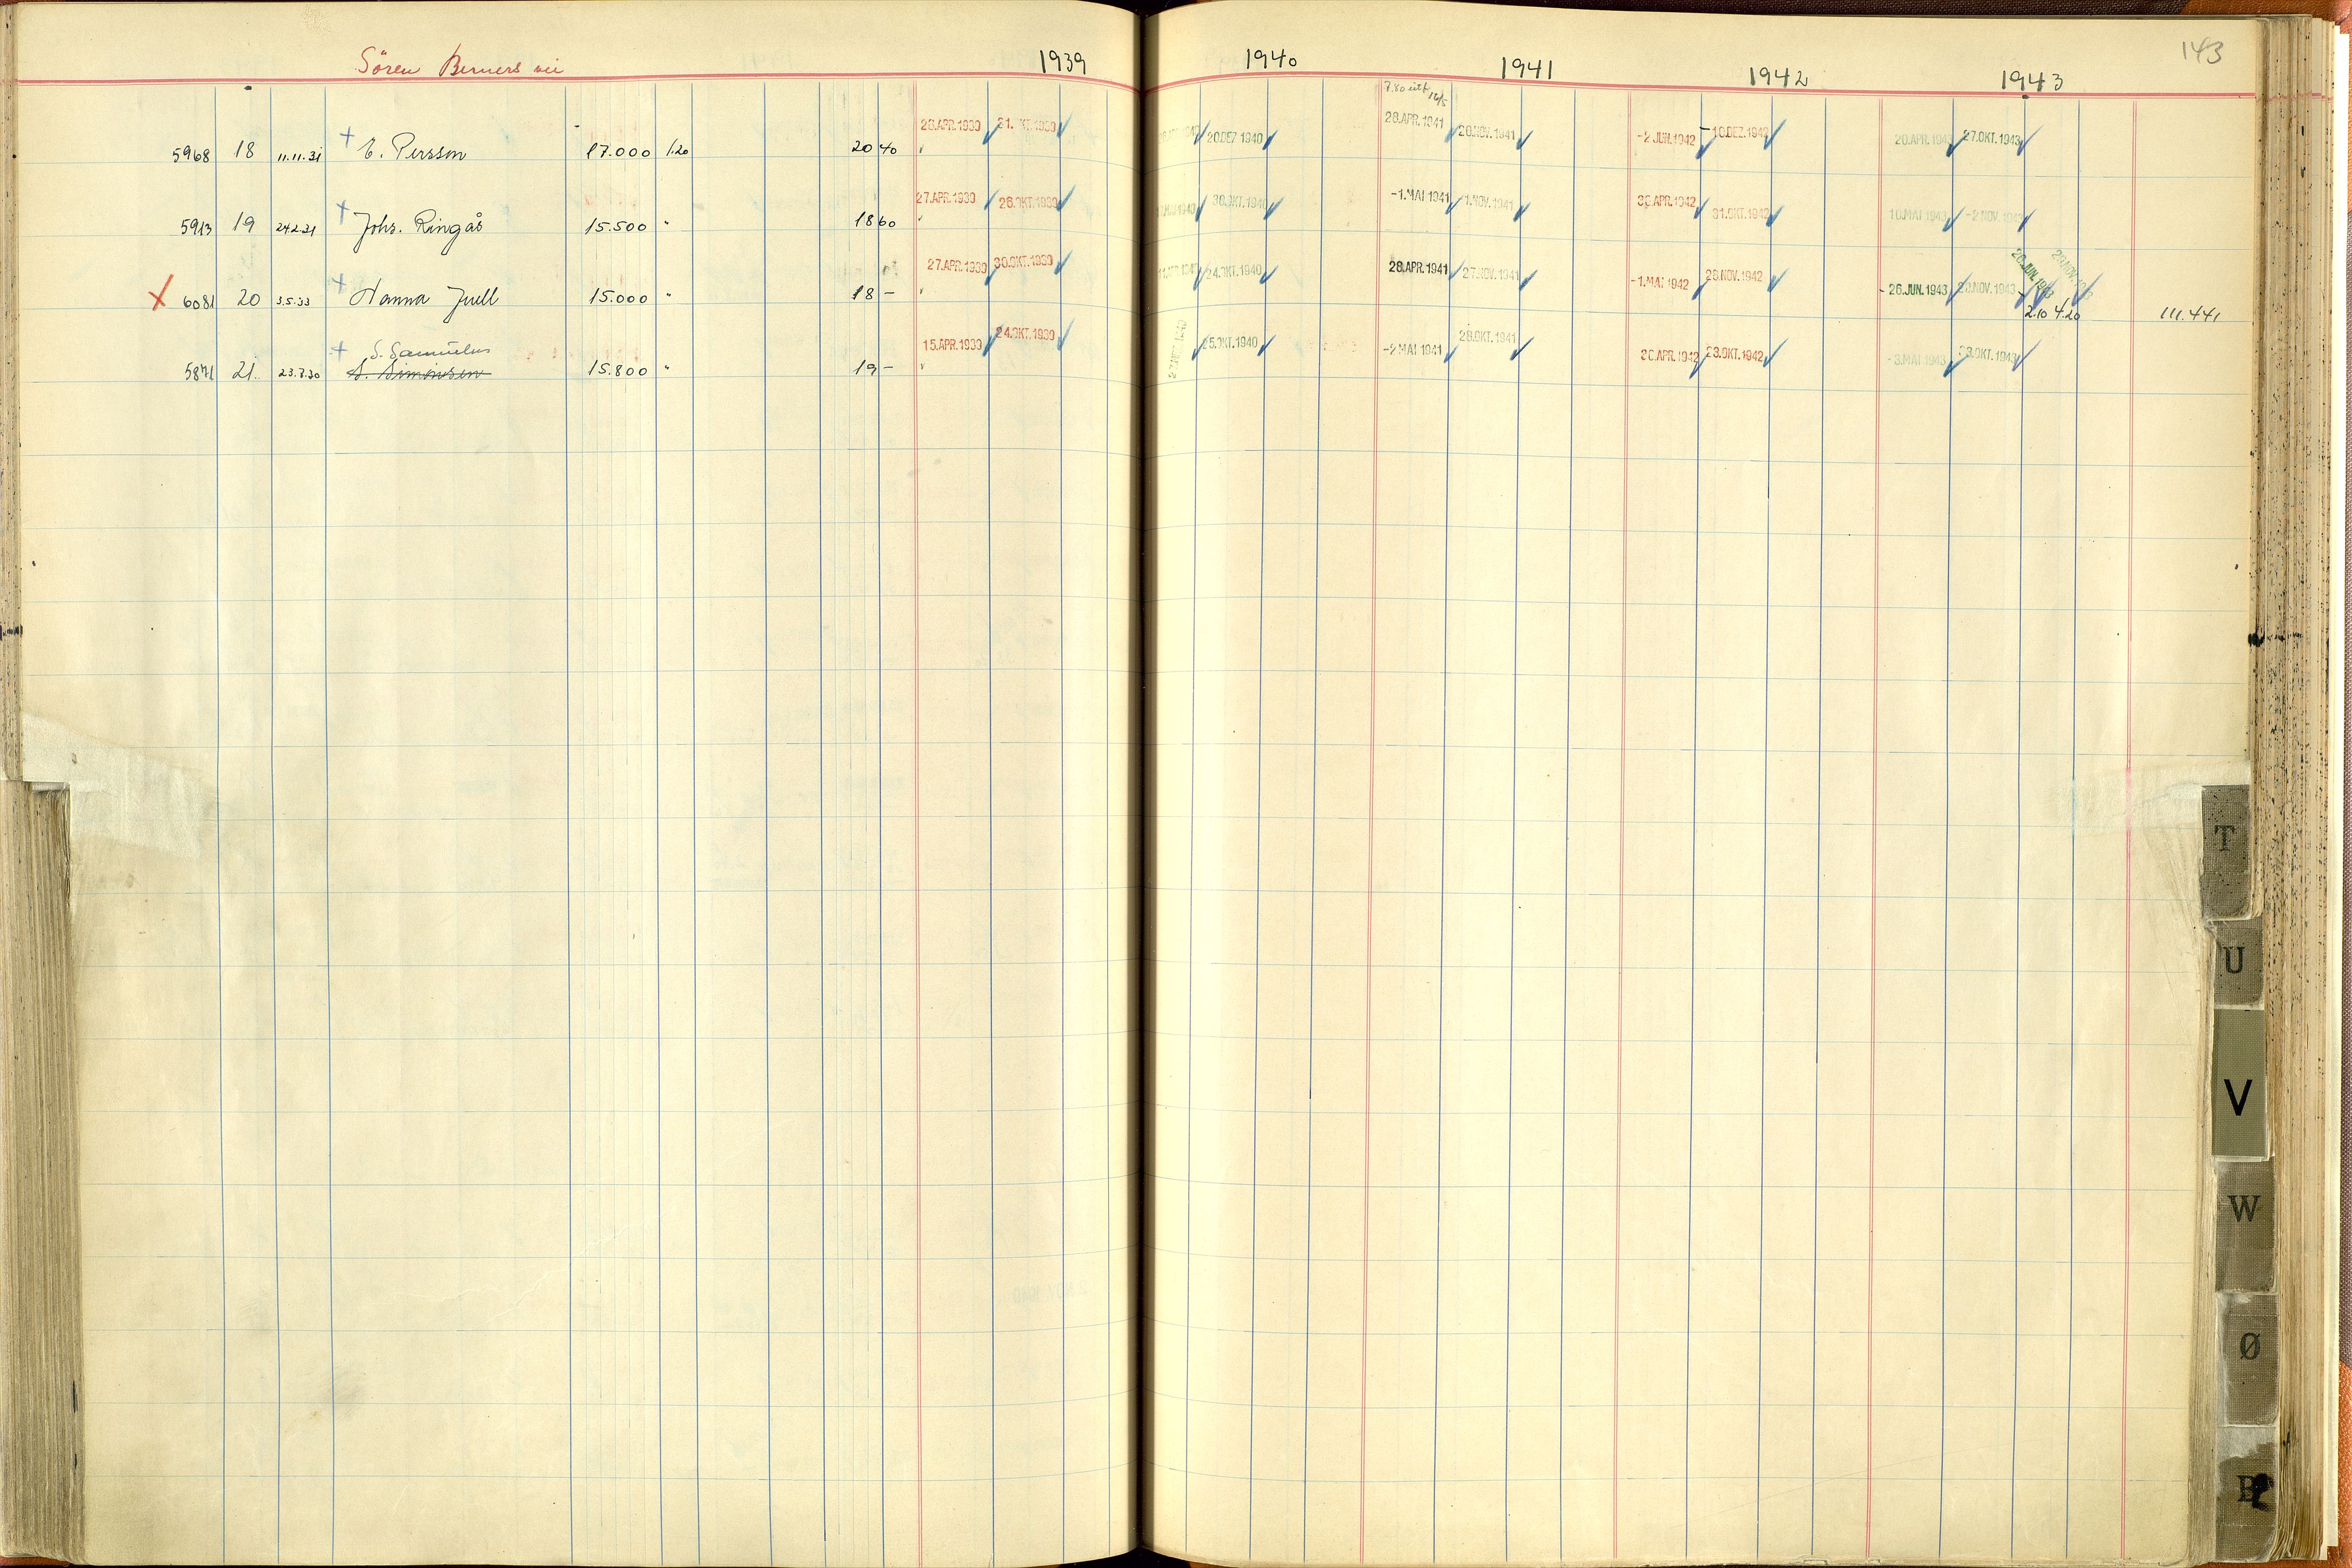 Sören Berners vei 1939 1940 1941 1942 1943 143
7.80
5968 18 11.11.31 + E. Persson 17.000 1.20 20 40 26.APR.1939 31.OKT.1939 20.DEZ.1940 28.APR.1941 20.NOV.1941 -2.JUN.1942 -10.DEZ.1942 20.APR.1943 27.OKT.1943
5913 19 24.2.31 + Johs. Ringås 15.500 " 18 60 27.APR.1939 26.OKT.1939 30.OKT.1940 -1.MAI 1941 1.NOV.1941 30.APR.1942 31.OKT.1942 10.MAI 1943 -2.NOV.1943
X 6081 20 3.5.33 + Hanna Juell 15.000 " 18 - 27.APR.1939 30.OKT.1939 24.OKT.1940 28.APR.1941 27.NOV.1941 -1.MAI 1942 26.NOV.1942 26.JUN.1943 26.JUN.1943
2.10 4.20 111.441
S. Samuelsen
5871 21. 23.7.30 + S. Simonsen 15.800 " 19 - 15.APR.1939 24.OKT.1939 25.OKT.1940 -2.MAI 1941 28.OKT.1941 20.APR.1942 23.OKT.1942 -3.MAI 1943 23.OKT.1943
T
U
V
W
Ø